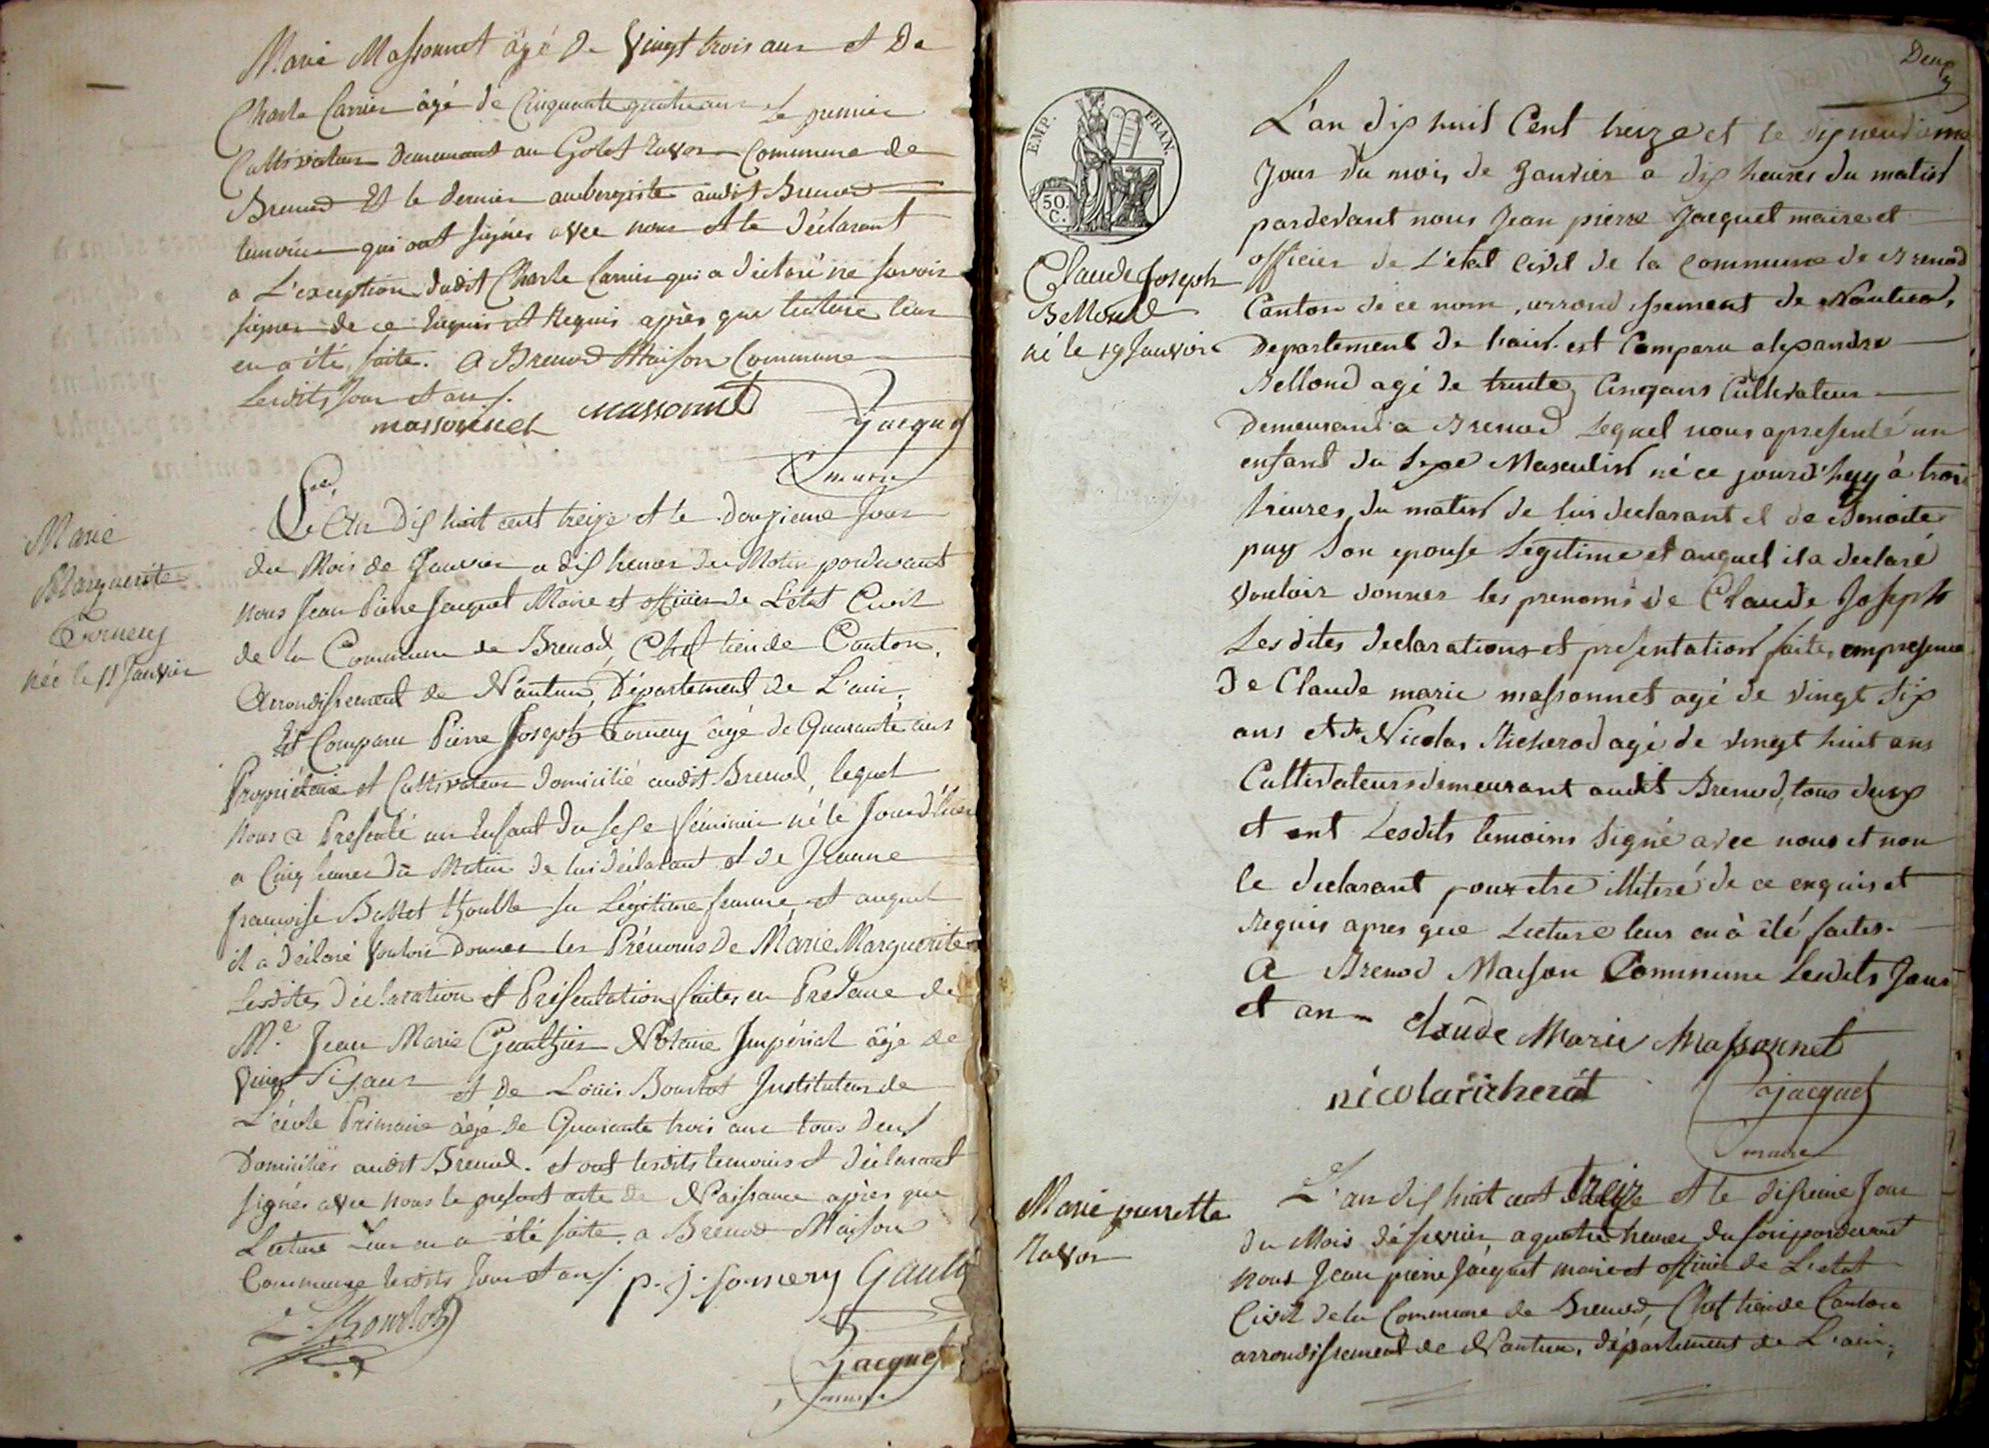 Marie Massonnet âgé de Vingt trois ans et De
Charle Carrier âgé de Cinquante quatre ans Le premier
Cultivateur Demeurant au Golet Ravor Commune de
Brenod Et le dernier aubergiste audit Brenod
temoins qui ont signés avec nous et le Déclarant
a L'exception dudit Charle Carrier qui a déclaré ne savoir
signer de ce Enquis et Requis après que lecture leur
en a été faite. a Brenod Maison Commune
Lesdits Jour et an.
massonnet massonnet Jacquet
maire
Marie
Marguerite
Tornery
née le 11 Janvier
L'An Dix huit cent treize et le Douzieme Jour
du Mois de Janvier a dix heures du Matin pardevant
nous Jean Pierre Jacquet Maire et officier de L'état Civil
de la Commune de Brenod, Chef lieu de Canton,
Arrondissement de Nantua, Département de L'ain,
Est Comparu Pierre Joseph Tornery âgé de Quarante ans
Propriétaire et Cultivateur domicilié audit Brenod, lequel
Nous a Présenté un Enfant du sexe féminin né le Jourd'hier
a Cinq heures du Matin de lui déclarant et de Jeanne
françoise Ballet sa Légitime femme, et auquel
il a déclaré Vouloir Donner les Prénoms De Marie Marguerite
Lesdites Déclaration et Présentation faites en Présence de
Me. Jean Marie Gauthier Notaire Impérial âgé de
Vingt Six ans et De Louis Bourlot Instituteur de
L'école Primaire âgé de Quarante trois ans tous Deux
Domiciliés audit Brenod. et ont lesdits temoins et déclarant
signés avec nous le présent acte de Naissance après que
Lecture Leur en a été faite. a Brenod Maison
Commune lesdits Jour et an. p. j. tornery Gault
L. Bourlot
Jacquet
maire
Deux
EMP. FRAN.
50 C.
Claude Joseph
Bellond
né le 19 Janvier
L'an dix huit Cent treize et le dix neuvieme
Jour du mois de Janvier a dix heures du matin
pardevant nous Jean pierre Jacquet maire et
officier de L'etat Civil de la commune de Brenod
Canton de ce nom, arrondissement de Nantua,
Departement de l'ain. est Comparu alexandre
Bellond agé de trente Cinq ans Cultivateur
Demeurant a Brenod Lequel nous a presenté un
enfant du sexe Masculin né ce jourd'huy à trois
heures du matin de lui declarant et de Benoite
puy son epouse Legitime et auquel il a declaré
vouloir donner les prenoms de Claude Joseph
Les dites declarations et presentation faites en presence
De Claude marie massonnet agé de vingt six
ans Et de Nicolas Richerod agé de vingt huit ans
Cultivateurs demeurant audit Brenod, tous deux
et ont Lesdits temoins signé avec nous et non
le declarant pour etre illiteré de ce enquis et
requis apres que Lecture leur en à été faites.
A Brenod Maison Commune Lesdits Jour
et an claude Marie Massonnet
nicola richerot Jacquet
maire
Marie pierrette
Ravor
L'an dix huit cent treize et le dixieme Jour
du Mois de fevrier, a quatre heures du soir pardevant
Nous Jean pierre Jacquet maire et officier de L'etat
Civil de la Commune de Brenod, Chef lieu de Canton
arrondissement de Nantua, département de L'ain,